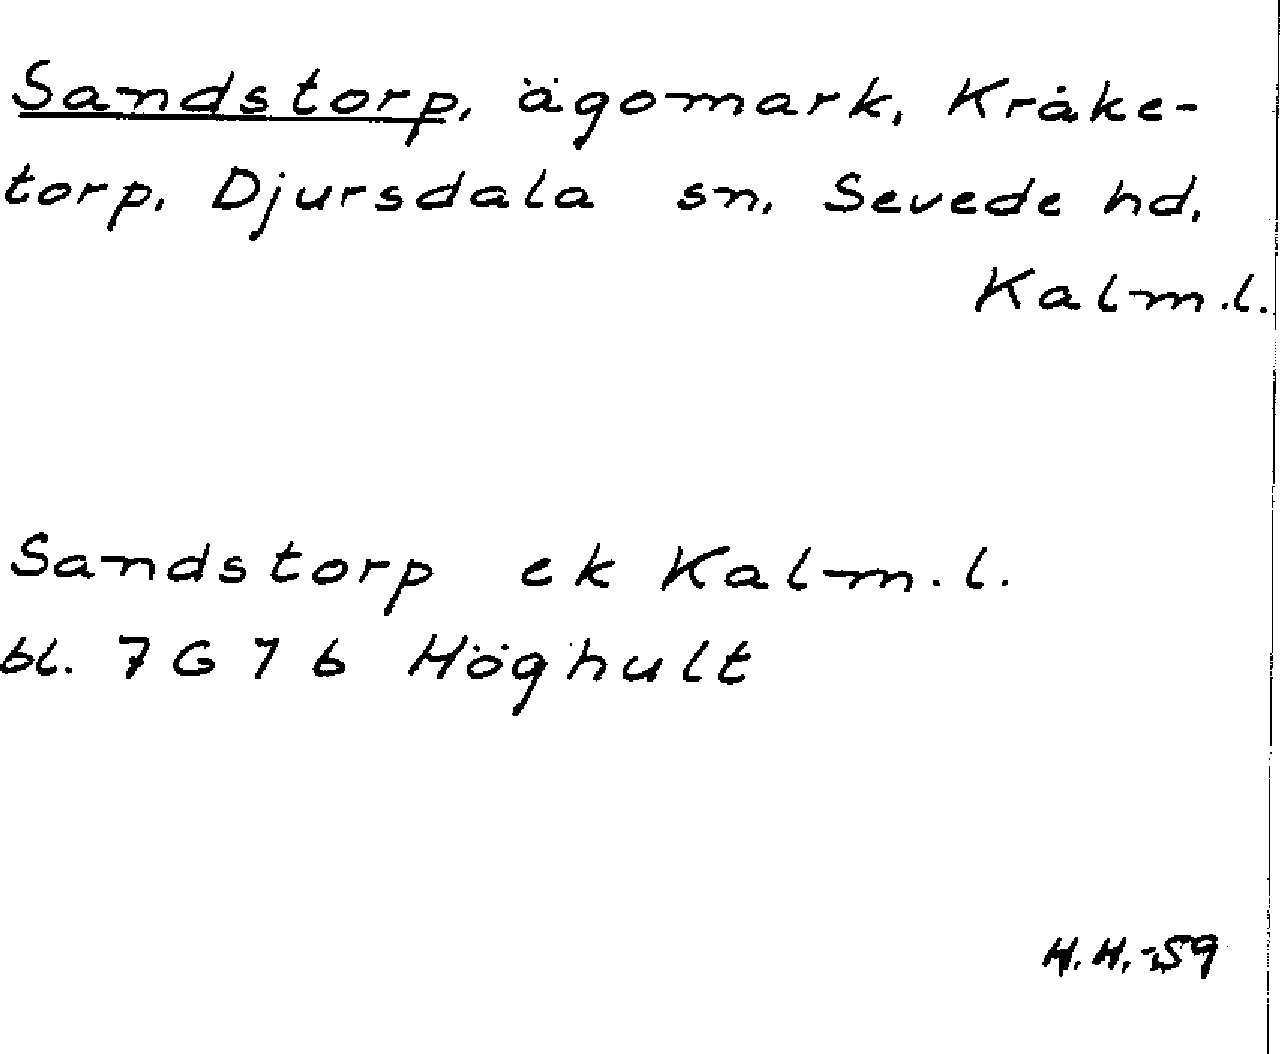 Sandstorp, ägomark, Kråke-
torp, Djursdala sn, Sevede hd,
Kalm.l.
Sandstorp ek Kalm.l.
bl. 7G7b Höghult
H.H.-59